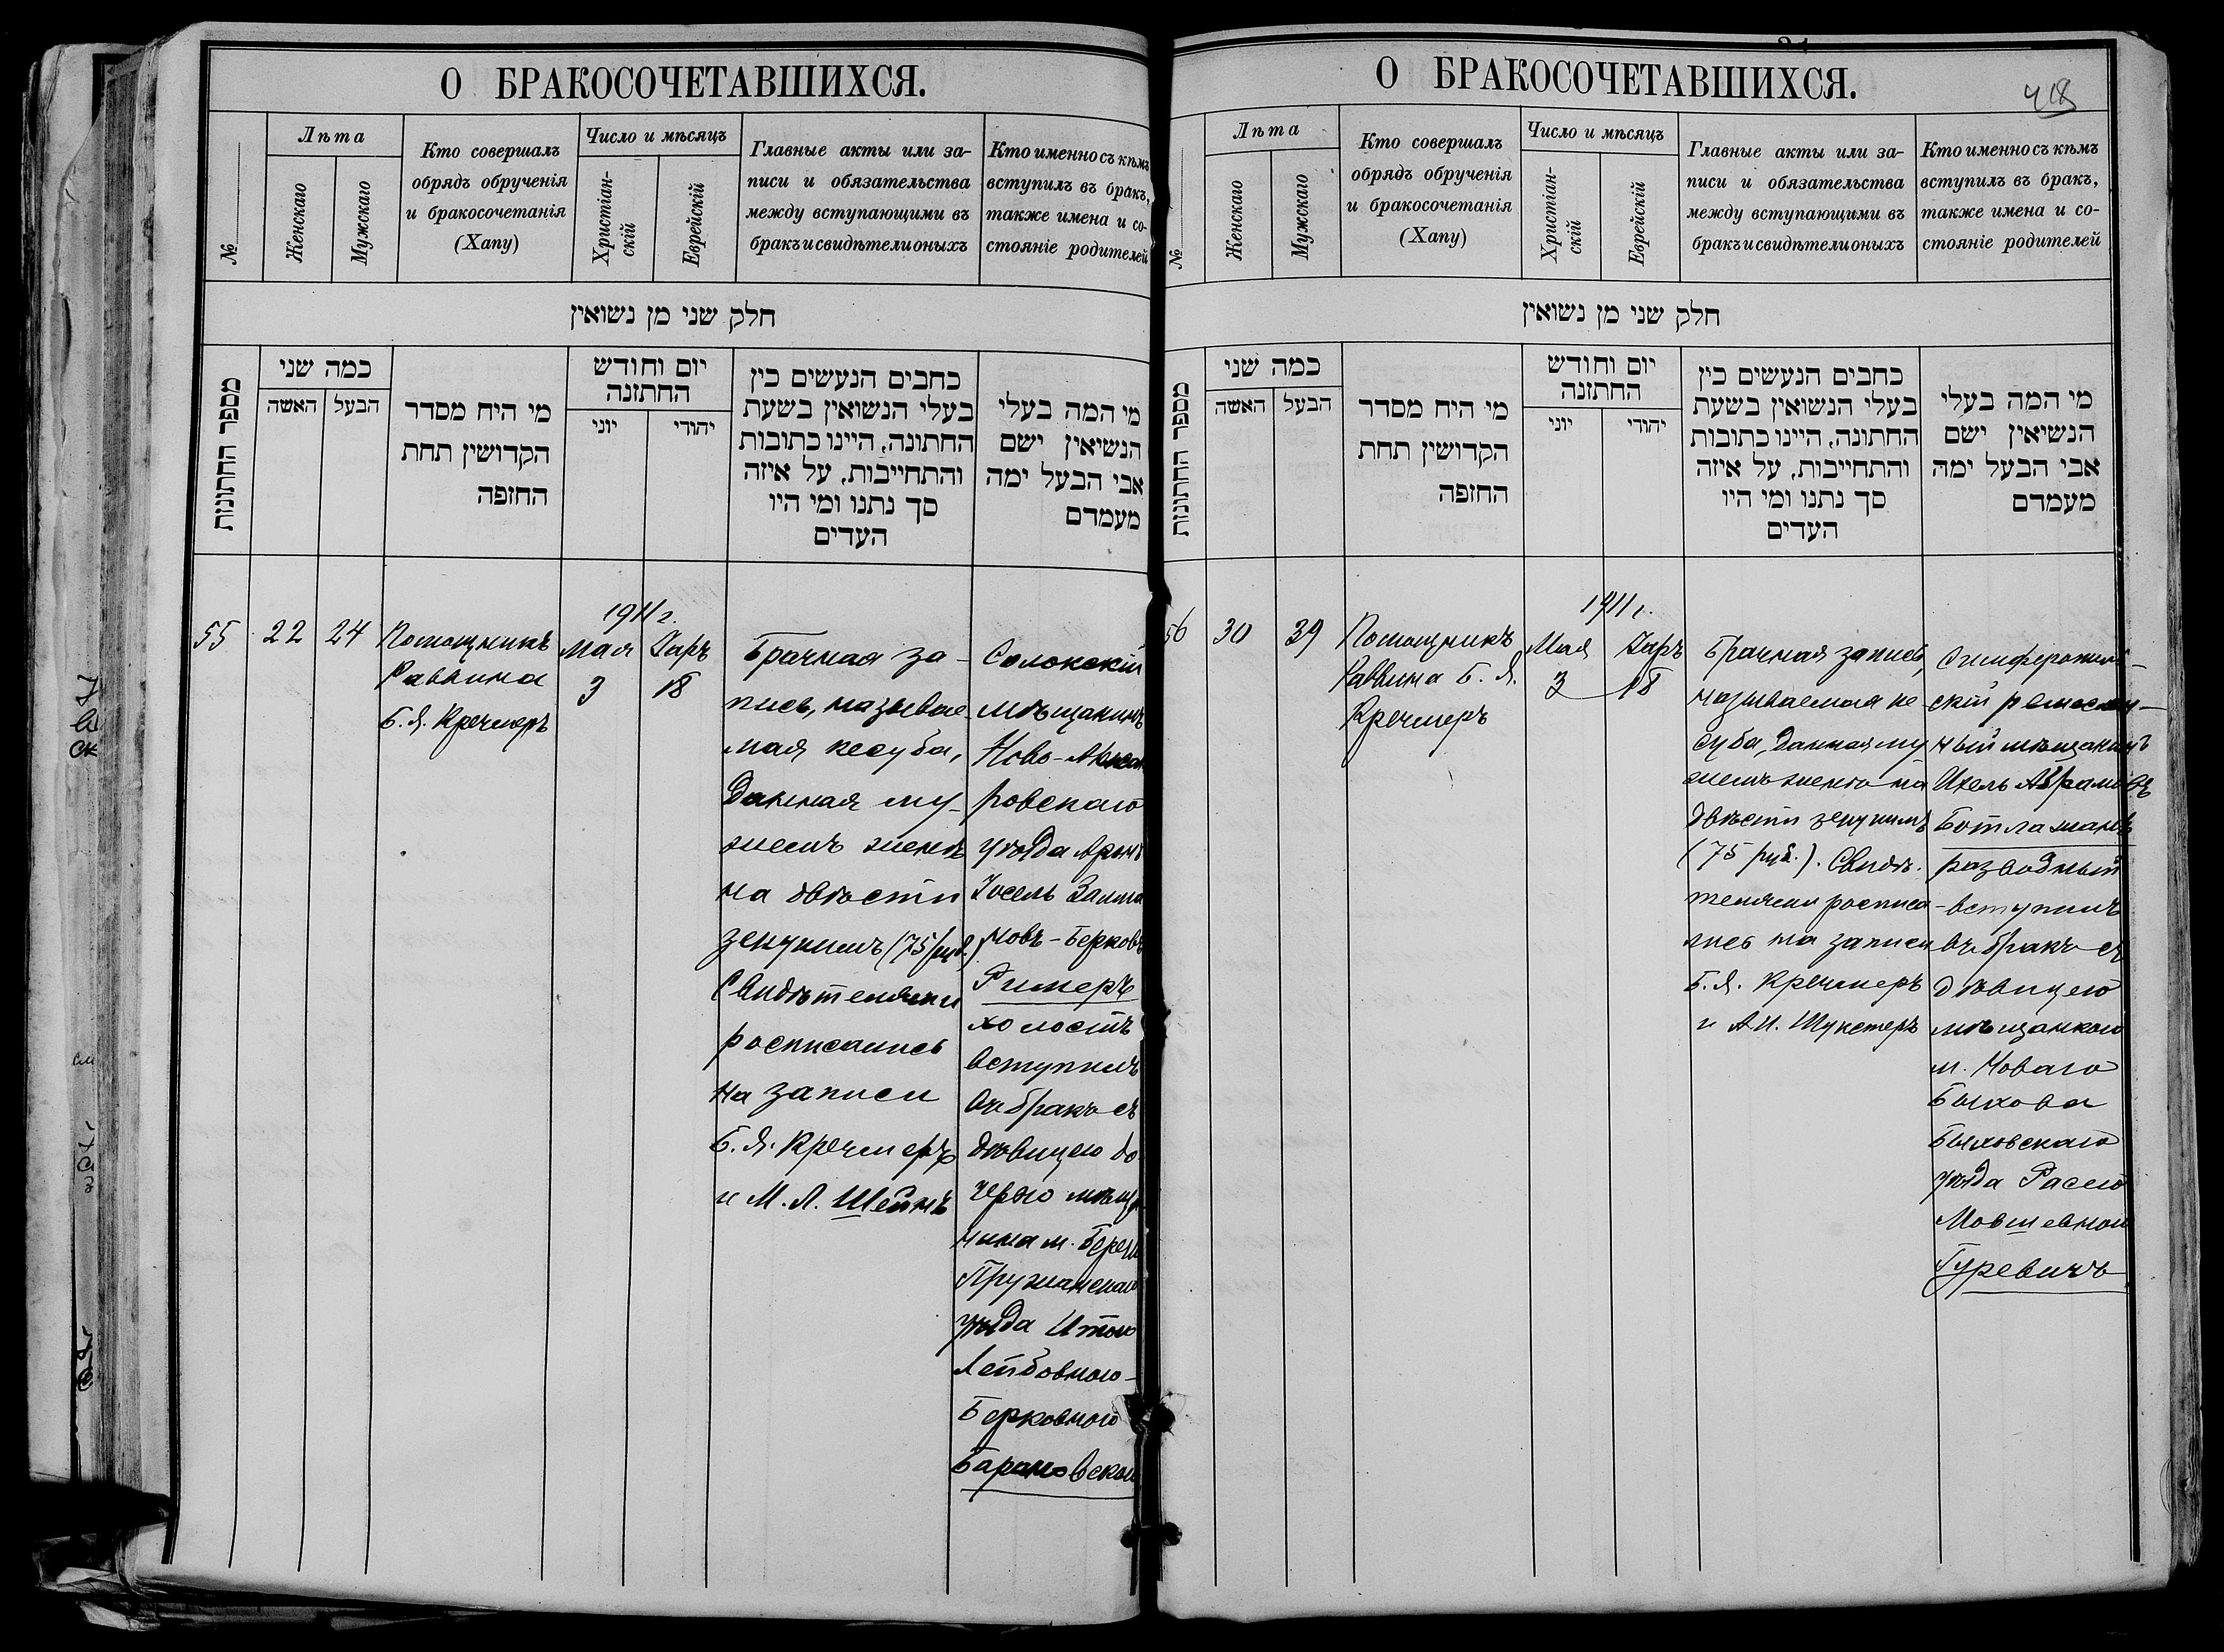 О БРАКОСОЧЕТАВШИХСЯ.
№
Лѣта
Женскаго
Мужскаго
Кто совершалъ
обрядъ обрученія
и бракосочетанія
(Хапу)
Число и мѣсяцъ
Христіан-
скій
Еврейскій
Главные акты или за-
писи и обязательства
между вступающими въ
бракъ и свидѣтели оныхъ
Кто именно съ кѣмъ
вступилъ въ бракъ,
также имена и со-
стояніе родителей
חלק שני מן נשואין
מספר החתונות
כמה שני
האשה
הבעל
מי היח מסדר
הקדושין תחת
החזפה
יום וחודש
החתזנה
יוני
יהודי
כחבים הנעשים כין
בעלי הנשואין בשעת
החתונה, היינו כתובות
והתחייבות, על איזה
סך נתנו ומי היו
העדים
מי המה בעלי
הנשיאין ישם
אבי הבעל ימה
מעמדם
55
22
24
Помощникъ
Раввина
Б. Я. Кречмеръ
1911 г.
мая
3
Іаръ
18
Брачная за-
пись, называе-
мая кесуба,
данная му-
жемъ женѣ
на двѣсти
зекукимъ (75 руб.)
Свидѣтелями
росписались
на записи
Б. Я. Кречмеръ
и М. Л. Шейнъ
Солокскій
мѣщанинъ
Ново-Алексан
ровскаго
уѣзда Аронъ
Іосель Залма
новъ-Берковъ
Римеръ
холостъ
вступилъ
въ бракъ съ
дѣвицею до
черью мѣща
нина м. Березы
Пружанскаго
уѣзда Итою
Лейбовною-
Берковною
Барановской
О БРАКОСОЧЕТАВШИХСЯ.
418
№
Лѣта
Женскаго
Мужскаго
Кто совершалъ
обрядъ обрученія
и бракосочетанія
(Хапу)
Число и мѣсяцъ
Христіан-
скій
Еврейскій
Главные акты или за-
писи и обязательства
между вступающими въ
бракъ и свидѣтели оныхъ
Кто именно съ кѣмъ
вступилъ въ бракъ,
также имена и со-
стояніе родителей
חלק שני מן נשואין
מספר החתונות
כמה שני
האשה
הבעל
מי היח מסדר
הקדושין תחת
החזפה
יום וחודש
החתזנה
יוני
יהודי
כחבים הנעשים כין
בעלי הנשואין בשעת
החתונה, היינו כתובות
והתחייבות, על איזה
סך נתנו ומי היו
העדים
מי המה בעלי
הנשיאין ישם
אבי הבעל ימה
מעמדם
56
30
39
Помощникъ
Раввина Б. Я.
Кречмеръ
1911 г.
Мая
3
Іаръ
18
Брачная запись,
называемая ке
суба, данная му
жемъ женѣ на
двѣсти зекукимъ
(75 руб.). Свидѣ-
телями росписа
лись на записи
Б. Я. Кречмеръ
и А. И. Шукстеръ
Симферополь-
скій ремеслен-
ный мѣщанинъ
Ихель Абрамовъ
Ботламанъ
разводный
вступилъ
въ бракъ съ
дѣвицею
мѣщанкою
м. Новаго
Быхова
Быховскаго
уѣзда Расею
Мовшевною
Гуревичъ